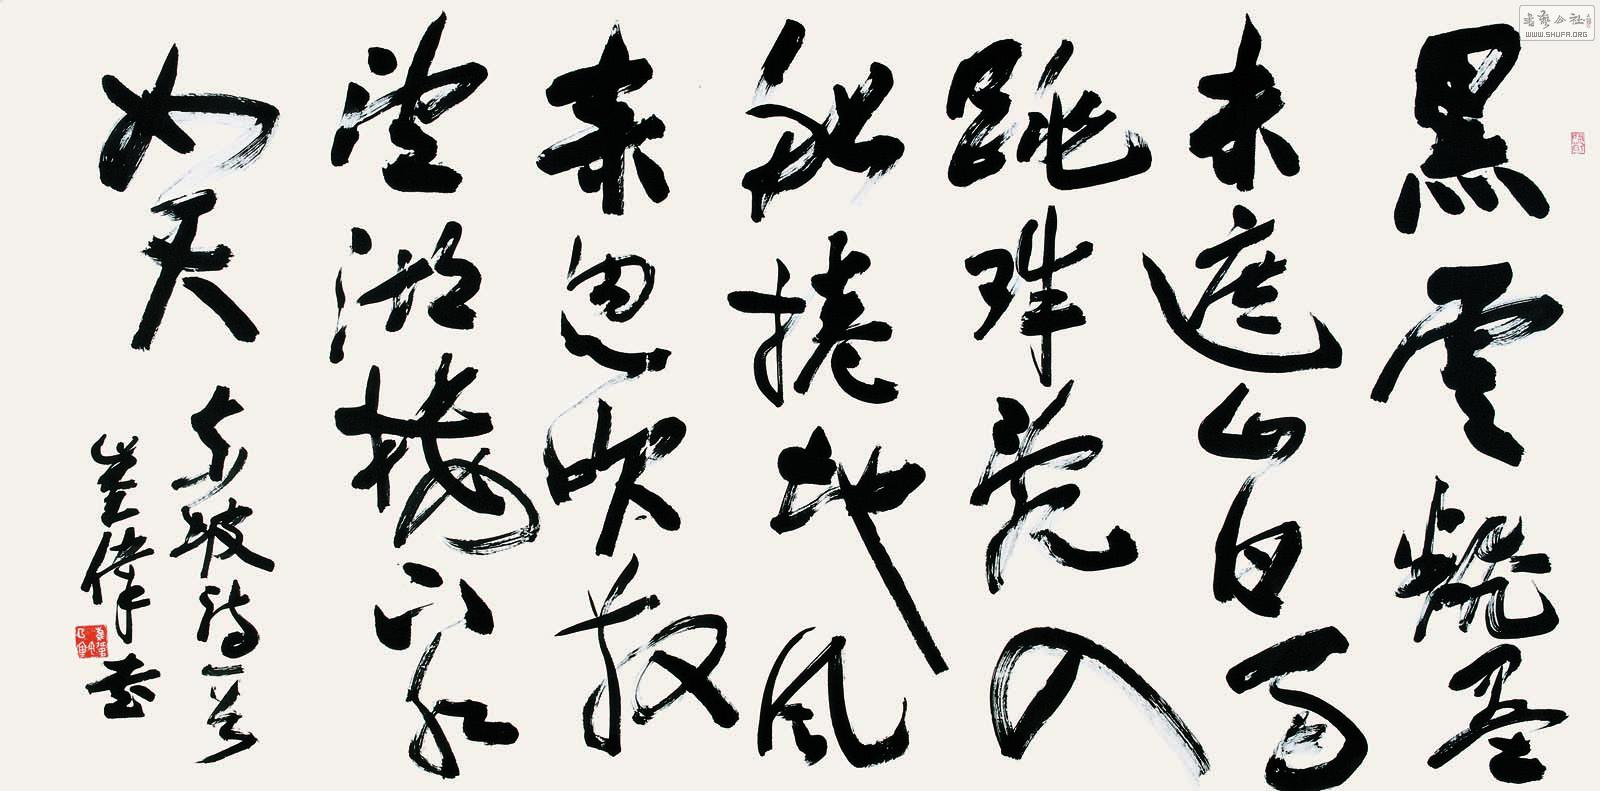 黑雲翻墨
未遮山白雨
跳珠亂入
船捲地風
来忽吹散
望湖樓下水
如天
東坡詩一首
崔偉書
書藝公社
WWW.SHUFA.ORG